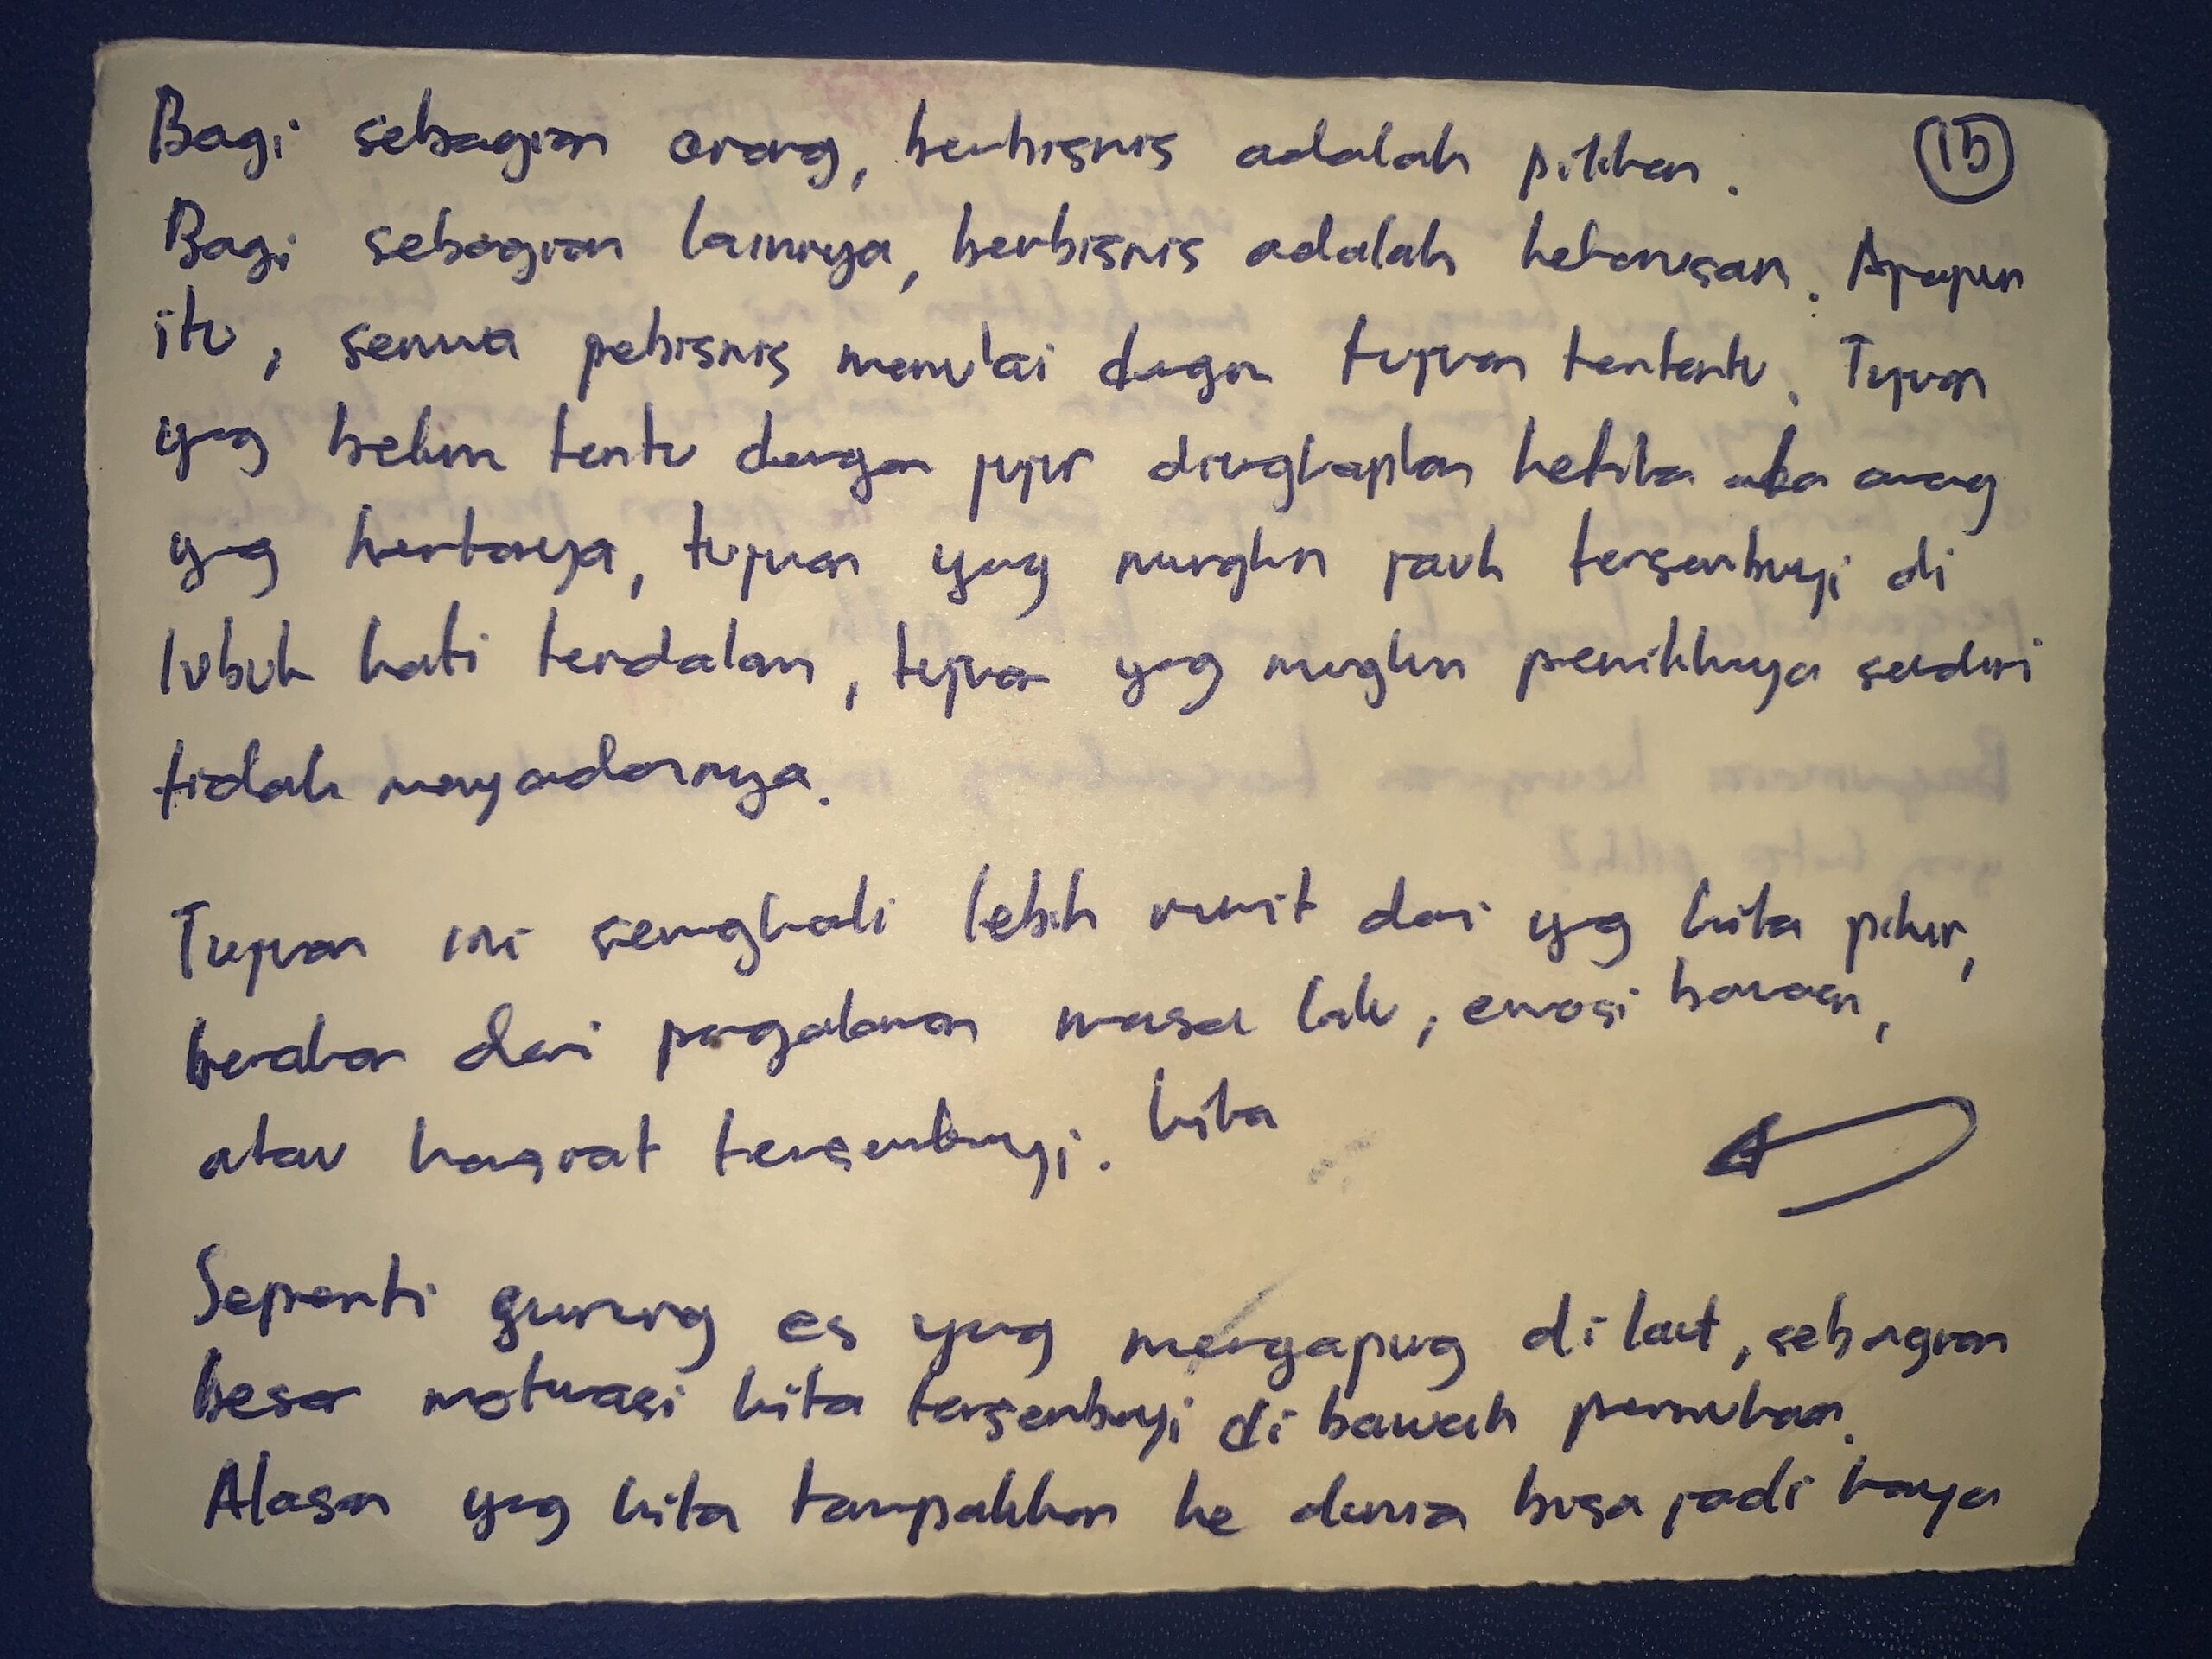 Bagi sebagian orang, berbisnis adalah pilihan. 15
Bagi sebagian lainnya, berbisnis adalah keharusan. Apapun
itu, semua pebisnis memulai dengan tujuan tertentu. Tujuan
yang belum tentu dengan jujur diungkapkan ketika ada orang
yang bertanya, tujuan yang mungkin jauh tersembunyi di
lubuk hati terdalam, tujuan yang mungkin pemiliknya sendiri
tidak menyadarinya.
Tujuan ini seringkali lebih rumit dari yg kita pikir,
berakar dari pengalaman masa lalu, emosi bawaan,
atau hasrat tersembunyi. Kita
Seperti gunung es yang mengapung di laut, sebagian
besar motivasi kita tersembunyi di bawah permukaan.
Alasan yang kita tampakkan ke dunia bisa jadi hanya